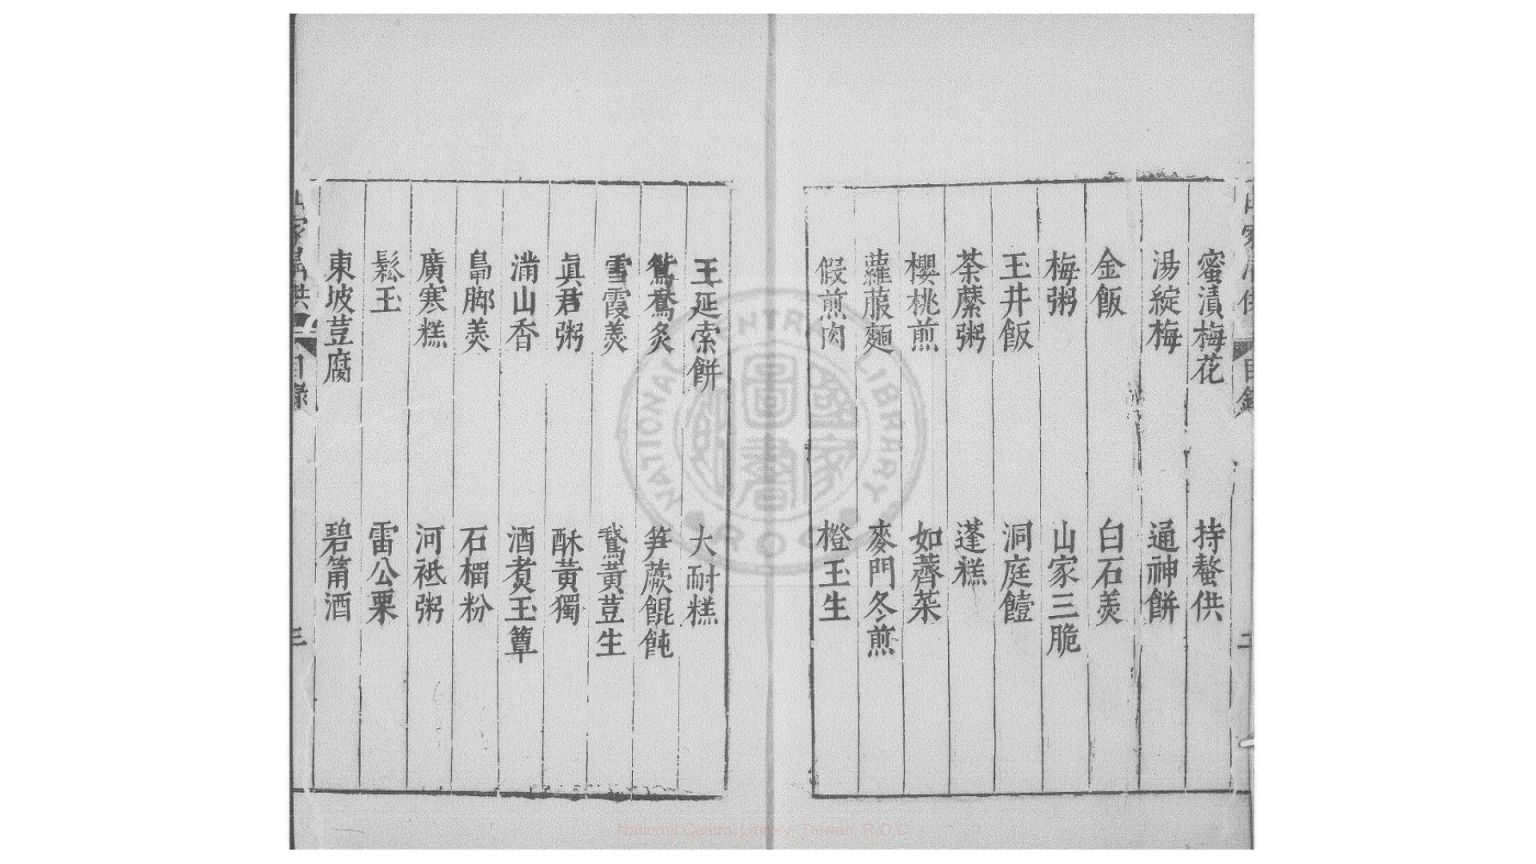 蜜漬梅花　持螯供
湯綻梅　通神餅
金飯　白石羹
梅粥　山家三脆
玉井飯　洞庭饐
荼蘼粥　蓬糕
櫻桃煎　如薺菜
蘿菔麵　麥門冬煎
假煎肉　橙玉生
王延索餅　大耐糕
鴛鴦炙　笋蕨餛飩
雪霞羹　鵞黃荳生
眞君粥　酥黃獨
滿山香　酒煑玉蕈
鳧脚羹　石橊粉
廣寒糕　河祗粥
鬆玉　雷公栗
東坡荳腐　碧筩酒
目錄
三
NATIONAL CENTRAL LIBRARY R.O.C
國家圖書館
National Central Library, Taiwan, R.O.C